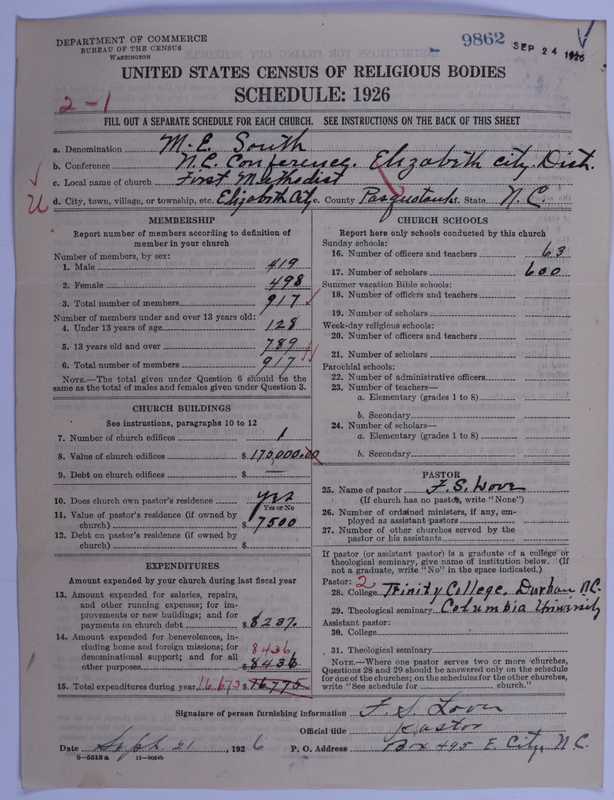 DEPARTMENT OF COMMERCE
BUREAU OF THE CENSUS
WASHINGTON
9862 SEP 24 1926
UNITED STATES CENSUS OF RELIGIOUS BODIES
SCHEDULE: 1926
2-1
FILL OUT A SEPARATE SCHEDULE FOR EACH CHURCH. SEE INSTRUCTIONS ON THE BACK OF THIS SHEET
a. Denomination M. E. South
b. Conference N.C. Conference. Elizabeth City Dist.
c. Local name of church First Methodist
d. City, town, village, or township, etc. Elizabeth City e. County Pasquotank f. State N.C.
MEMBERSHIP
Report number of members according to definition of member in your church
Number of members, by sex:
1. Male 419
2. Female 498
3. Total number of members 917
Number of members under and over 13 years old:
4. Under 13 years of age 128
5. 13 years old and over 789
6. Total number of members 917
NOTE.—The total given under Question 6 should be the same as the total of males and females given under Question 3.
CHURCH BUILDINGS
See instructions, paragraphs 10 to 12
7. Number of church edifices 1
8. Value of church edifices $170,000.00
9. Debt on church edifices $ —
10. Does church own pastor's residence yes
Yes or No
11. Value of pastor's residence (if owned by church) $7500
12. Debt on pastor's residence (if owned by church) $
EXPENDITURES
Amount expended by your church during last fiscal year
13. Amount expended for salaries, repairs, and other running expenses; for improvements or new buildings; and for payments on church debt $8237.
14. Amount expended for benevolences, including home and foreign missions; for denominational support; and for all other purposes 8436 $8436
15. Total expenditures during year 16,673 $16,775
CHURCH SCHOOLS
Report here only schools conducted by this church
Sunday schools:
16. Number of officers and teachers 63
17. Number of scholars 600
Summer vacation Bible schools:
18. Number of officers and teachers
19. Number of scholars
Week-day religious schools:
20. Number of officers and teachers
21. Number of scholars
Parochial schools:
22. Number of administrative officers
23. Number of teachers—
a. Elementary (grades 1 to 8)
b. Secondary
24. Number of scholars—
a. Elementary (grades 1 to 8)
b. Secondary
PASTOR
25. Name of pastor F. S. Love
(If church has no pastor, write "None")
26. Number of ordained ministers, if any, employed as assistant pastors
27. Number of other churches served by the pastor or his assistants
If pastor (or assistant pastor) is a graduate of a college or theological seminary, give name of institution below. (If not a graduate, write "No" in the space indicated.)
Pastor: 2
28. College Trinity College, Durham N.C.
29. Theological seminary Columbia University
Assistant pastor:
30. College
31. Theological seminary
NOTE.—Where one pastor serves two or more churches, Questions 28 and 29 should be answered only on the schedule for one of the churches; on the schedules for the other churches, write "See schedule for ........ church."
Signature of person furnishing information F. S. Love
Official title Pastor
Date Sept 21, 1926 P. O. Address Box 495 E. City, N.C.
8—5518a 11—9054b